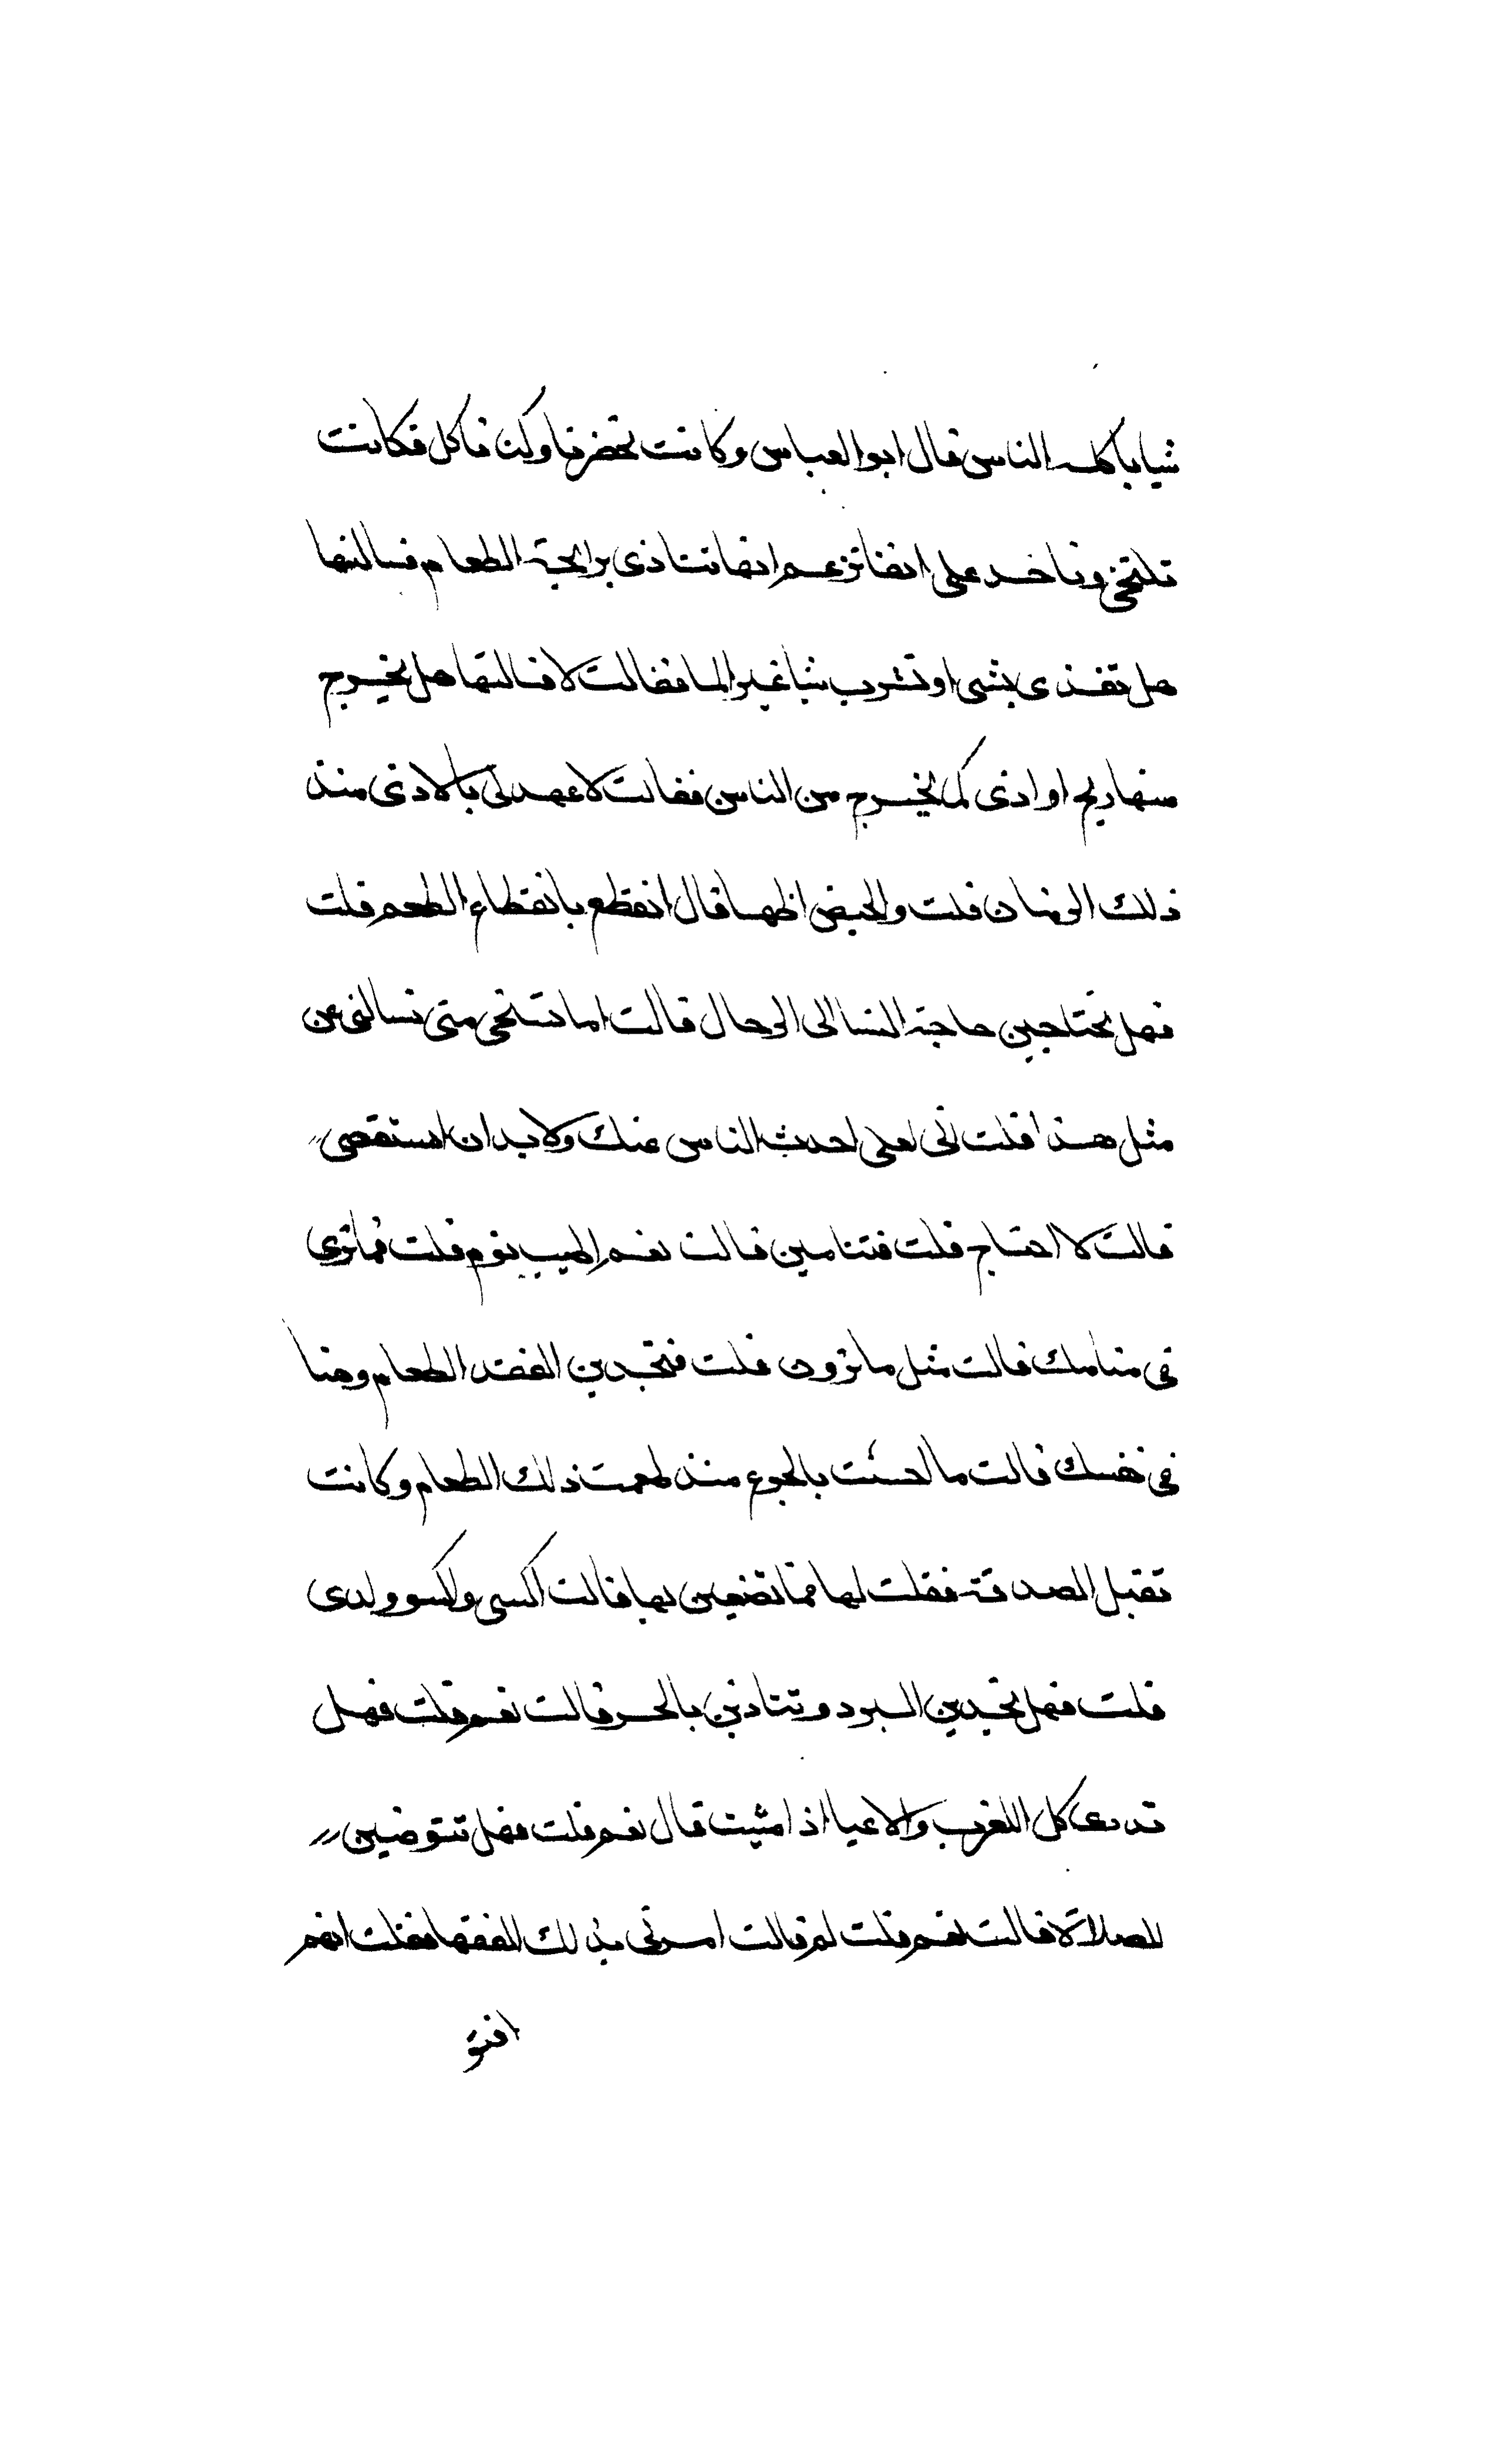 شيا ياكله الناس قال ابو العباس وكانت تحضرنا وكنا ناكل فكانت
تلتخي وناخد على انفها تزعم انها تتاذى برايحة الطعام فسالتها
هل تغذى بشى او تشرب شيا غير الما فقالت لا فسالتها هل يخرج
منها ريح او اذى كما يخرج من الناس فقالت لا عهد لى بالاذى منذ
ذلك الزمان قلت والحيض اظهاقال انقطع بانقطاع الطعم قلت
فهل تحتاجين حاجة النسا الى الرجال قالت اما تستحى منى تسالنى عن
مثل هذا قلت انى لعلى احدث الناس عنك ولا بد ان استقصى
قالت لا احتاج قلت فتنامين قالت نعم اطيب نوم قلت فما ترى
فى منامك قالت مثل ما ترون قلت فتجدين الفقد الطعام وهنا
فى نفسك قالت ما احسست بالجوع منذ طعمت ذلك الطعام وكانت
تقبل الصدقة فقلت لها فما تصنعين بها قالت اكتسى واكسو ولدى
قلت فهل تجدين البرد وتتاذين بالحر قالت نعم قلت فهل
كل اللغوب والاعيا اذا مشيت قال نعم قلت فهل تتوضين
للصلاة قالت نعم قلت لم قالت امرنى بذلك الفقها فقلت انهم
افتو